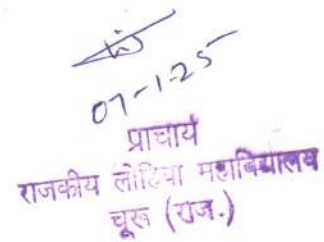 07-1-25
प्राचार्य
राजकीय लोहिया महाविद्यालय
चूरू (राज.)